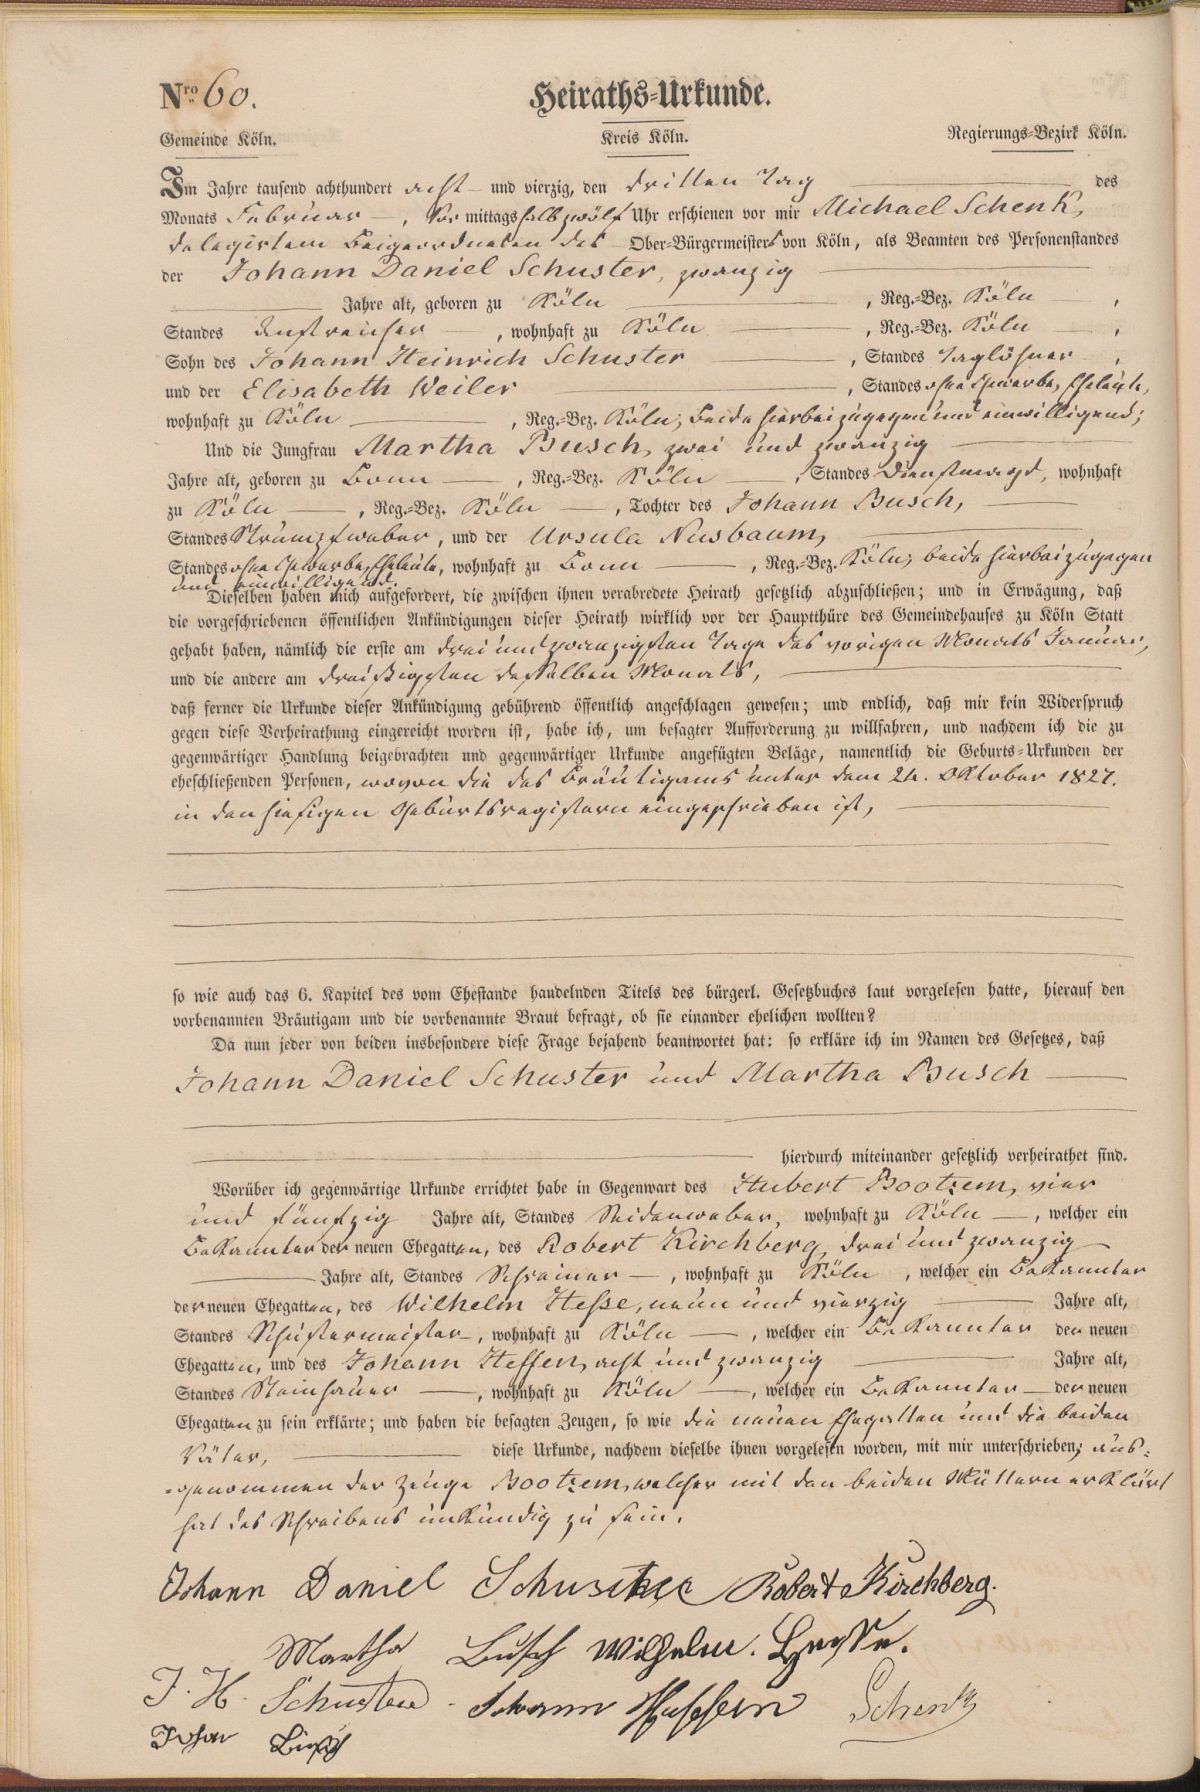 Nro 60.
Heiraths-Urkunde.
Gemeinde Köln. Kreis Köln. Regierungs-Bezirk Köln.
Im Jahre tausend achthundert acht und vierzig, den dritten Tag des
Monats Februar, Vor mittags halb zwölf Uhr erschienen vor mir Michael Schenk,
delegirtem Beigeordneten des Ober-Bürgermeisters von Köln, als Beamten des Personenstandes
der Johann Daniel Schuster, zwanzig
Jahre alt, geboren zu Köln, Reg.-Bez. Köln,
Standes Anstreicher, wohnhaft zu Köln, Reg.-Bez. Köln,
Sohn des Johann Heinrich Schuster, Standes Taglöhner,
und der Elisabeth Weiler, Standes ohne Gewerbe, Eheleute,
wohnhaft zu Köln, Reg.-Bez. Köln; beide hierbei zugegen und einwilligend;
Und die Jungfrau Martha Busch, zwei und zwanzig
Jahre alt, geboren zu Bonn, Reg.-Bez. Köln, Standes Dienstmagd, wohnhaft
zu Köln, Reg.-Bez. Köln, Tochter des Johann Busch,
Standes Strumpfweber, und der Ursula Nusbaum,
Standes ohne Gewerbe, Eheleute, wohnhaft zu Bonn, Reg.-Bez. Köln; beide hierbei zugegen
und einwilligend.
Dieselben haben mich aufgefordert, die zwischen ihnen verabredete Heirath gesetzlich abzuschließen; und in Erwägung, daß
die vorgeschriebenen öffentlichen Ankündigungen dieser Heirath wirklich vor der Hauptthüre des Gemeindehauses zu Köln Statt
gehabt haben, nämlich die erste am drei und zwanzigsten Tage des vorigen Monats Januar,
und die andere am dreißigsten desselben Monats,
daß ferner die Urkunde dieser Ankündigung gebührend öffentlich angeschlagen gewesen; und endlich, daß mir kein Widerspruch
gegen diese Verheirathung eingereicht worden ist, habe ich, um besagter Aufforderung zu willfahren, und nachdem ich die zu
gegenwärtiger Handlung beigebrachten und gegenwärtiger Urkunde angefügten Beläge, namentlich die Geburts-Urkunden der
eheschließenden Personen, wovon die des Bräutigams unter dem 24. Oktober 1827.
in den hiesigen Geburtsregistern eingeschrieben ist,
so wie auch das 6. Kapitel des vom Ehestande handelnden Titels des bürgerl. Gesetzbuches laut vorgelesen hatte, hierauf den
vorbenannten Bräutigam und die vorbenannte Braut befragt, ob sie einander ehelichen wollten?
Da nun jeder von beiden insbesondere diese Frage bejahend beantwortet hat: so erkläre ich im Namen des Gesetzes, daß
Johann Daniel Schuster und Martha Busch
hierdurch miteinander gesetzlich verheirathet sind.
Worüber ich gegenwärtige Urkunde errichtet habe in Gegenwart des Hubert Bootzem, vier
und fünfzig Jahre alt, Standes Seidenweber, wohnhaft zu Köln, welcher ein
Bekannter der neuen Ehegatten, des Robert Kirchberg, drei und zwanzig
Jahre alt, Standes Schreiner, wohnhaft zu Köln, welcher ein Bekannter
der neuen Ehegatten, des Wilhelm Heße, neun und vierzig Jahre alt,
Standes Schustermeister, wohnhaft zu Köln, welcher ein Bekannter der neuen
Ehegatten, und des Johann Heffen, acht und zwanzig Jahre alt,
Standes Steinhauer, wohnhaft zu Köln, welcher ein Bekannter der neuen
Ehegatten zu sein erklärte; und haben die besagten Zeugen, so wie die neuen Ehegatten und die beiden
Väter, diese Urkunde, nachdem dieselbe ihnen vorgelesen worden, mit mir unterschrieben; aus-
genommen der Zeuge Bootzem, welcher mit den beiden Müttern erklärt
hat des Schreibens unkundig zu sein.
Johann Daniel Schuster Robert Kirchberg.
Martha Busch Wilhelm. Hesse.
J. H. Schuster Johann Schenk
Johan Busch